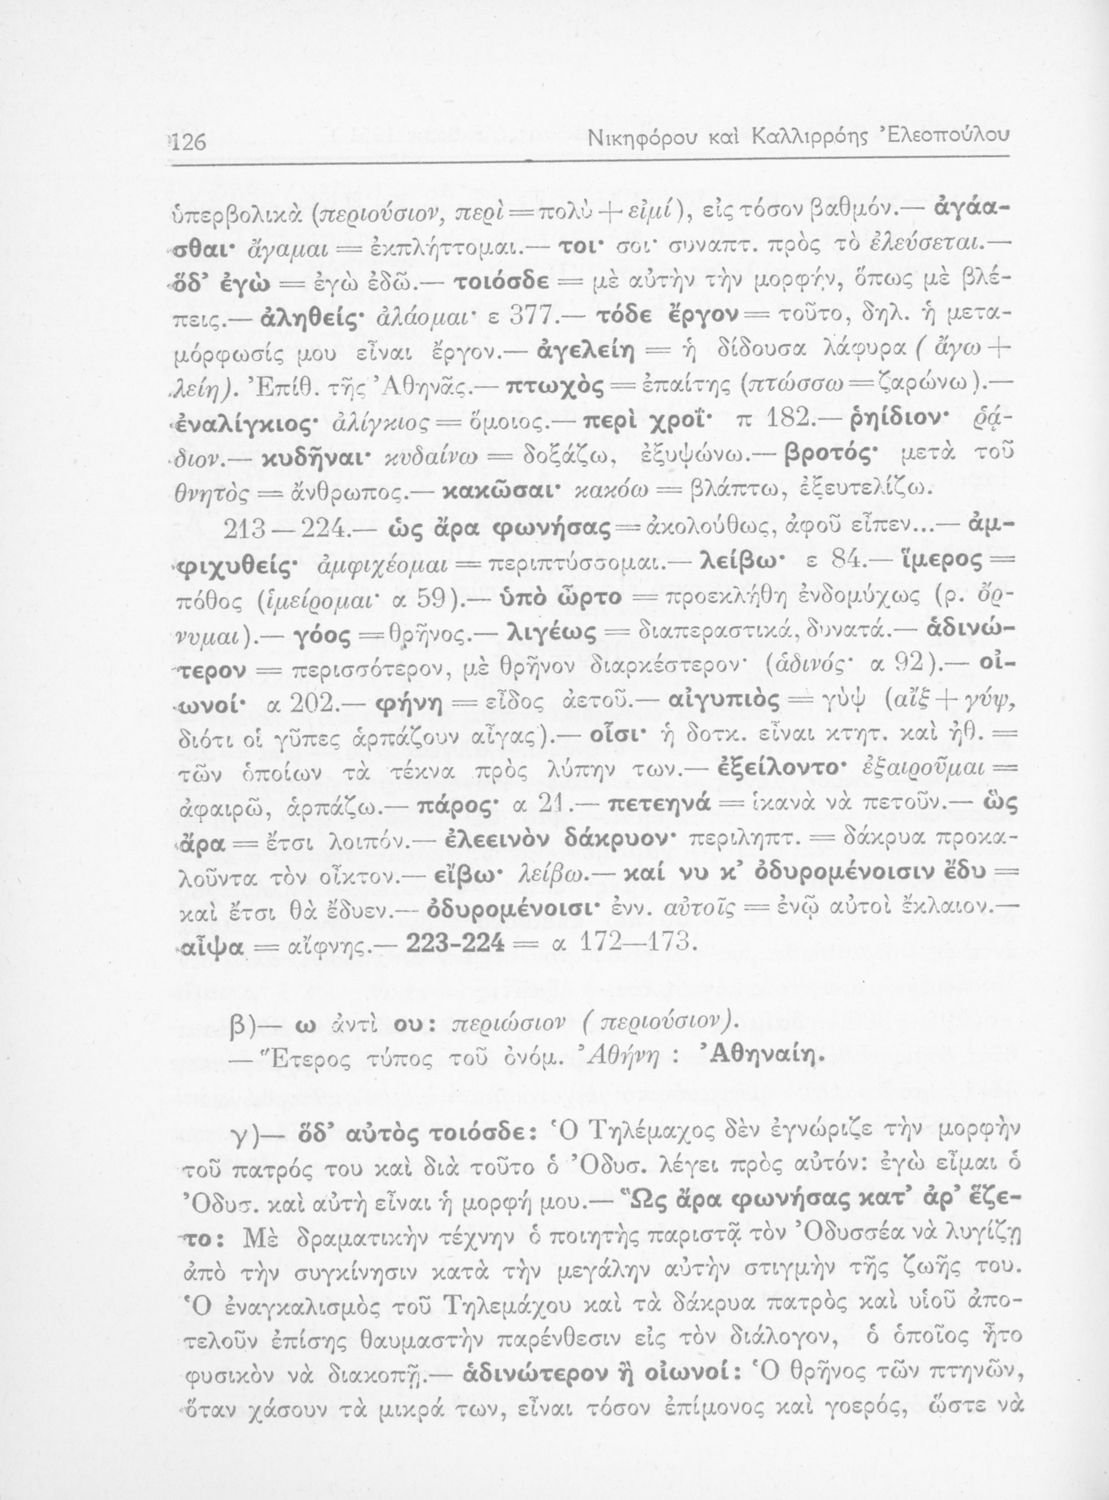 126 Νικηφόρου καὶ Καλλιρρόης Ἐλεοπούλου
ὑπερβολικὰ (περιούσιον, περὶ = πολὺ + εἰμί), εἰς τόσον βαθμόν.— ἀγάα-
σθαι· ἄγαμαι = ἐκπλήττομαι.— τοι· σοι· συναπτ. πρὸς τὸ ἐλεύσεται.—
ὅδ’ ἐγὼ = ἐγὼ ἐδῶ.— τοιόσδε = μὲ αὐτὴν τὴν μορφήν, ὅπως μὲ βλέ-
πεις.— ἀληθείς· ἀλάομαι· ε 377.— τόδε ἔργον = τοῦτο, δηλ. ἡ μετα-
μόρφωσίς μου εἶναι ἔργον.— ἀγελείη = ἡ δίδουσα λάφυρα ( ἄγω +
λείη). Ἐπίθ. τῆς Ἀθηνᾶς.— πτωχὸς = ἐπαίτης (πτώσσω = ζαρώνω ).—
ἐναλίγκιος· ἀλίγκιος = ὅμοιος.— περὶ χροΐ· π 182.— ῥηίδιον· ῥά-
διον.— κυδῆναι· κυδαίνω = δοξάζω, ἐξυψώνω.— βροτός· μετὰ τοῦ
θνητὸς = ἄνθρωπος.— κακῶσαι· κακόω = βλάπτω, ἐξευτελίζω.
213 — 224.— ὡς ἄρα φωνήσας = ἀκολούθως, ἀφοῦ εἶπεν...— ἀμ-
φιχυθείς· ἀμφιχέομαι = περιπτύσσομαι.— λείβω· ε 84.— ἵμερος =
πόθος (ἱμείρομαι· α 59).— ὑπὸ ὦρτο = προεκλήθη ἐνδομύχως (ρ. ὄρ-
νυμαι).— γόος = θρῆνος.— λιγέως = διαπεραστικά, δυνατά.— ἁδινώ-
τερον = περισσότερον, μὲ θρῆνον διαρκέστερον· (ἁδινός· α 92).— οἰ-
ωνοί· α 202.— φήνη = εἶδος ἀετοῦ.— αἰγυπιὸς = γὺψ (αἲξ + γύψ,
διότι οἱ γῦπες ἁρπάζουν αἶγας).— οἷσι· ἡ δοτκ. εἶναι κτητ. καὶ ἠθ. =
τῶν ὁποίων τὰ τέκνα πρὸς λύπην των.— ἐξείλοντο· ἐξαιροῦμαι =
ἀφαιρῶ, ἁρπάζω.— πάρος· α 21.— πετεηνά = ἱκανὰ νὰ πετοῦν.— ὣς
ἄρα = ἔτσι λοιπόν.— ἐλεεινὸν δάκρυον· περιληπτ. = δάκρυα προκα-
λοῦντα τὸν οἶκτον.— εἴβω· λείβω.— καί νυ κ’ ὀδυρομένοισιν ἔδυ =
καὶ ἔτσι θὰ ἔδυεν.— ὀδυρομένοισι· ἐνν. αὐτοῖς = ἐνῷ αὐτοὶ ἔκλαιον.—
αἶψα = αἴφνης.— 223-224 = α 172—173.
β)— ω ἀντὶ ου: περιώσιον ( περιούσιον).
— Ἕτερος τύπος τοῦ ὀνόμ. Ἀθήνη : Ἀθηναίη.
γ)— ὅδ’ αὐτὸς τοιόσδε: Ὁ Τηλέμαχος δὲν ἐγνώριζε τὴν μορφὴν
τοῦ πατρός του καὶ διὰ τοῦτο ὁ Ὀδυσ. λέγει πρὸς αὐτόν: ἐγὼ εἶμαι ὁ
Ὀδυσ. καὶ αὐτὴ εἶναι ἡ μορφή μου.— Ὣς ἄρα φωνήσας κατ’ ἀρ’ ἕζε-
το: Μὲ δραματικὴν τέχνην ὁ ποιητὴς παριστᾷ τὸν Ὀδυσσέα νὰ λυγίζῃ
ἀπὸ τὴν συγκίνησιν κατὰ τὴν μεγάλην αὐτὴν στιγμὴν τῆς ζωῆς του.
Ὁ ἐναγκαλισμὸς τοῦ Τηλεμάχου καὶ τὰ δάκρυα πατρὸς καὶ υἱοῦ ἀπο-
τελοῦν ἐπίσης θαυμαστὴν παρένθεσιν εἰς τὸν διάλογον, ὁ ὁποῖος ἦτο
φυσικὸν νὰ διακοπῇ.— ἁδινώτερον ἢ οἰωνοί: Ὁ θρῆνος τῶν πτηνῶν,
ὅταν χάσουν τὰ μικρά των, εἶναι τόσον ἐπίμονος καὶ γοερός, ὥστε νὰ